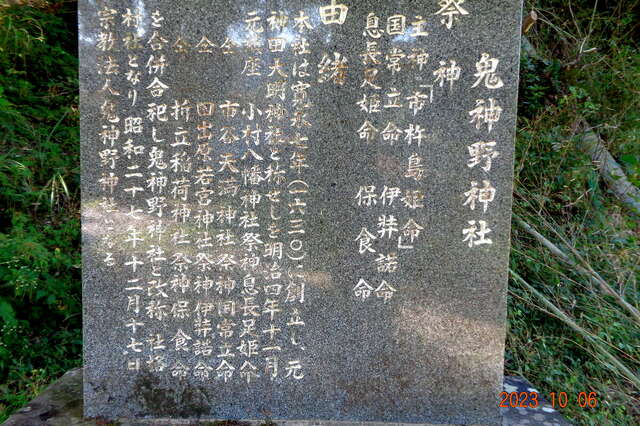 鬼神野神社
祭神
主神「市杵島姫命」
国常立命　伊弉諾命
息長足姫命　保食命
由緒
本社は寛永七年(一六三〇)に創立し、元
神田大明神社と称せしを明治四年十二月
元無座　小村八幡神社祭神息長足姫命
仝　市谷天満神社祭神国常立命
仝　田出原若宮神社祭神伊弉諾命
仝　折立稲荷神社祭神保食命
を合併合祀し鬼神野神社と改称社格
村社となり昭和二十七年十二月十七日
宗教法人鬼神野神社となる
2023 10 06